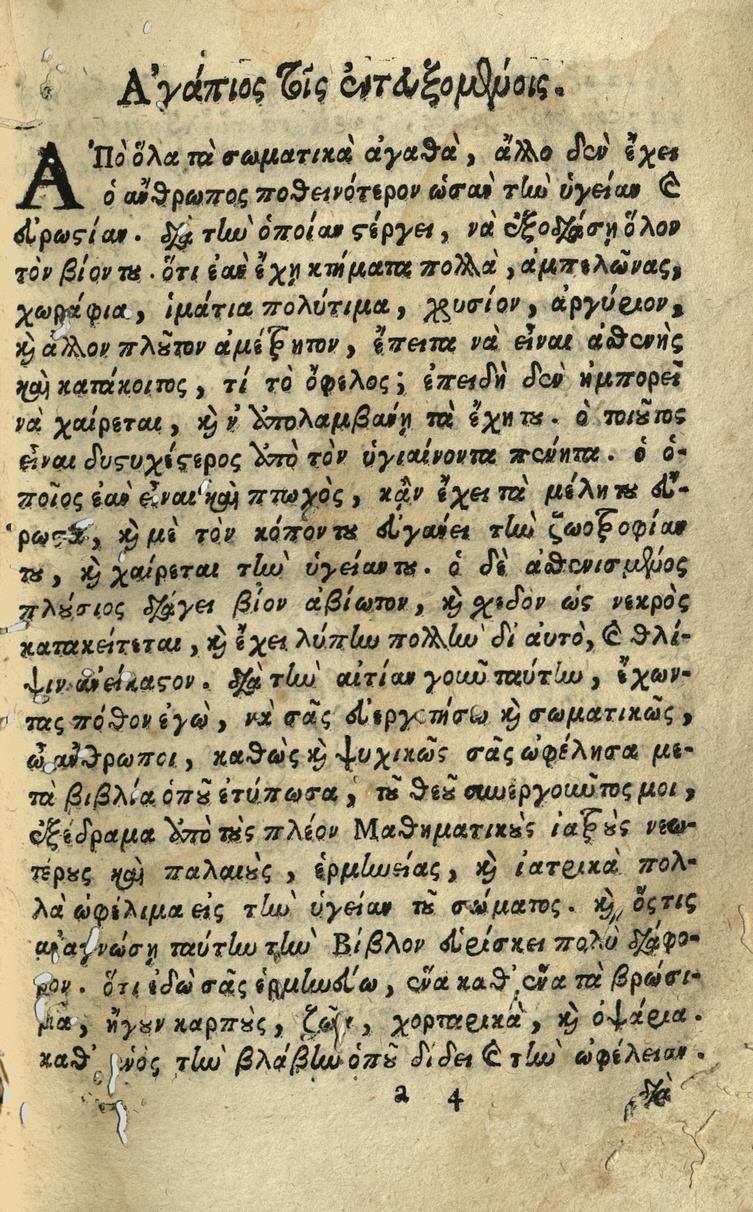 Ἀγάπιος τοῖς ἐντευξομένοις.
ἈΠὸ ὅλα τὰ σωματικὰ ἀγαθὰ, ἄλλο δὲν ἔχει
ὁ ἄνθρωπος ποθεινότερον ὡσὰν τὴν ὑγείαν καὶ
εὐρωστίαν. διὰ τὴν ὁποίαν στέργει, νὰ ἐξοδιάσῃ ὅλον
τὸν βίον του. ὅτι ἐὰν ἔχῃ κτήματα πολλὰ, ἀμπελῶνας,
χωράφια, ἱμάτια πολύτιμα, χρυσίον, ἀργύριον,
καὶ ἄλλον πλοῦτον ἀμέτρητον, ἔπειτα νὰ εἶναι ἀσθενὴς
καὶ κατάκοιτος, τί τὸ ὄφελος; ἐπειδὴ δὲν ἠμπορεῖ
νὰ χαίρεται, καὶ ν' ἀπολαμβάνῃ τὰ ἔχη του. ὁ τοιοῦτος
εἶναι δυστυχέστερος ἀπὸ τὸν ὑγιαίνοντα πένητα. ὁ ὁ-
ποῖος ἐὰν εἶναι καὶ πτωχὸς, κᾂν ἔχει τὰ μέλη του εὔ-
ρωστα, καὶ μὲ τὸν κόπον του εὐγάνει τὴν ζωοτροφίαν
του, καὶ χαίρεται τὴν ὑγείαν του. ὁ δὲ ἀσθενισμένος
πλούσιος διάγει βίον ἀβίωτον, καὶ σχεδὸν ὡς νεκρὸς
κατακείτεται, καὶ ἔχει λύπην πολλὴν δι' αὐτὸ, καὶ θλί-
ψιν ἀνείκαστον. διὰ τὴν αἰτίαν γοῦν ταύτην, ἔχων-
τας πόθον ἐγὼ, νὰ σᾶς εὐεργετήσω καὶ σωματικῶς,
ὦ ἄνθρωποι, καθὼς καὶ ψυχικῶς σᾶς ὠφέλησα με-
τὰ βιβλία ὁποῦ ἐτύπωσα, τοῦ θεοῦ συνεργοῦντός μοι,
ἐξέδραμα ἀπὸ τοὺς πλέον Μαθηματικοὺς ἰατροὺς νεω-
τέρους καὶ παλαιοὺς, ἑρμηνείας, καὶ ἰατρικὰ πολ-
λὰ ὠφέλιμα εἰς τὴν ὑγείαν τοῦ σώματος. καὶ ὅστις
ἀναγνώσῃ ταύτην τὴν Βίβλον εὑρίσκει πολὺ διάφο-
ρον. ὅτι ἐδὼ σᾶς ἑρμηνεύω, ἕνα καθ' ἕνα τὰ βρώσι-
μα, ἤγουν καρποὺς, ζῶα, χορταρικὰ, καὶ ὀψάρια.
καθ' ἑνὸς τὴν βλάβην ὁποῦ δίδει καὶ τὴν ὠφέλειαν.
a 4 διὰ